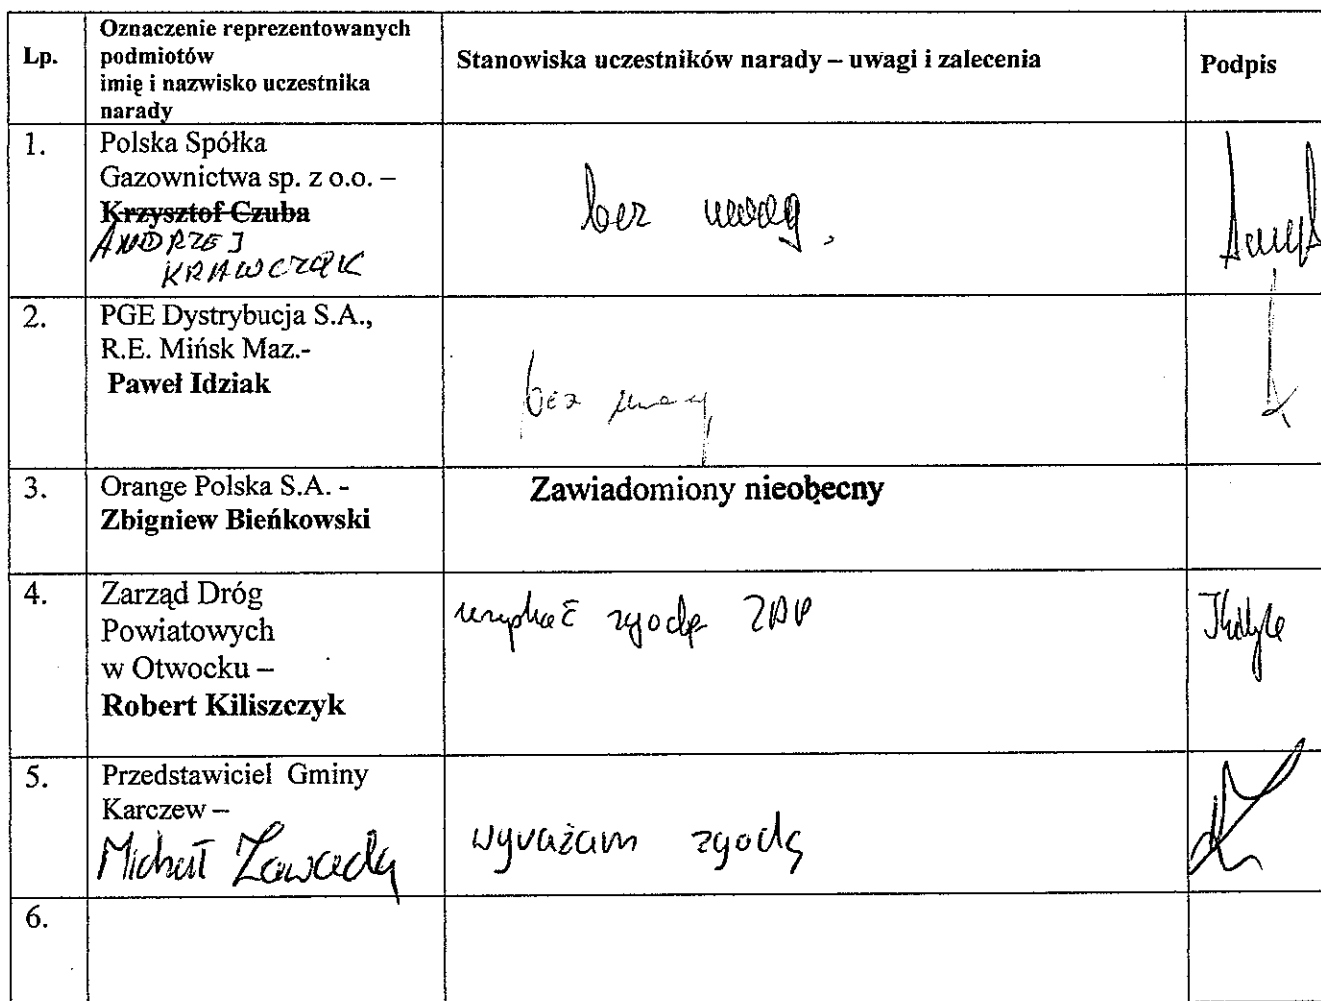 Lp.
Oznaczenie reprezentowanych
podmiotów
imię i nazwisko uczestnika
narady
Stanowiska uczestników narady – uwagi i zalecenia
Podpis
1.
Polska Spółka
Gazownictwa sp. z o.o. –
Krzysztof Czuba
ANDRZEJ
KRAWCZYK
bez uwag.
2.
PGE Dystrybucja S.A.,
R.E. Mińsk Maz.-
Paweł Idziak
bez uwag
3.
Orange Polska S.A. -
Zbigniew Bieńkowski
Zawiadomiony nieobecny
4.
Zarząd Dróg
Powiatowych
w Otwocku –
Robert Kiliszczyk
uzyskać zgodę ZDP
5.
Przedstawiciel Gminy
Karczew –
Michał Zawada
wyrażam zgodę
6.